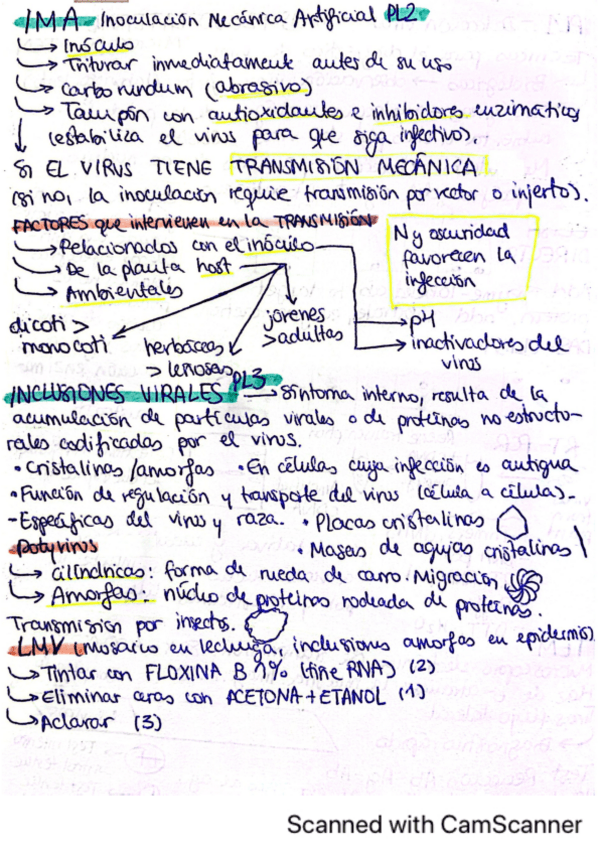 IMA - Inoculación Mecánica Artificial PL2
→ Inóculo
→ Triturar inmediatamente antes de su uso
→ Carborundum (abrasivo)
→ Tampón con antioxidantes e inhibidores enzimáticos
(estabiliza el virus para que siga infectivo).
SI EL VIRUS TIENE TRANSMISIÓN MECÁNICA
(si no, la inoculación requiere transmisión por vector o injerto).
FACTORES que intervienen en la TRANSMISIÓN
→ Relacionados con el inóculo
→ De la planta host
→ Ambientales
N y oscuridad
favorecen la
infección
dicoti >
monocoti
herbáceas
> leñosas
jóvenes
> adultas
→ pH
→ inactivadores del
virus
INCLUSIONES VIRALES PL3 → Síntoma interno, resulta de la
acumulación de partículas virales o de proteínas no estructu-
rales codificadas por el virus.
• Cristalinas/amorfas • En células cuya infección es antigua
• Función de regulación y transporte del virus (célula a célula).-
- Específicas del virus y raza. • Placas cristalinas
Potyvirus • Masas de agujas cristalinas
→ Cilíndricas: forma de rueda de carro. Migración
→ Amorfas: núcleo de proteínas rodeada de proteínas.
Transmisión por insectos.
LMV (mosaico en lechuga, inclusiones amorfas en epidermis)
→ Tintar con FLOXINA B 1% (tiñe RNA) (2)
→ Eliminar ceras con ACETONA + ETANOL (1)
→ Aclarar (3)
Scanned with CamScanner